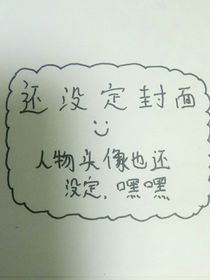 还没定封面
人物头像也还
没定,嘿嘿